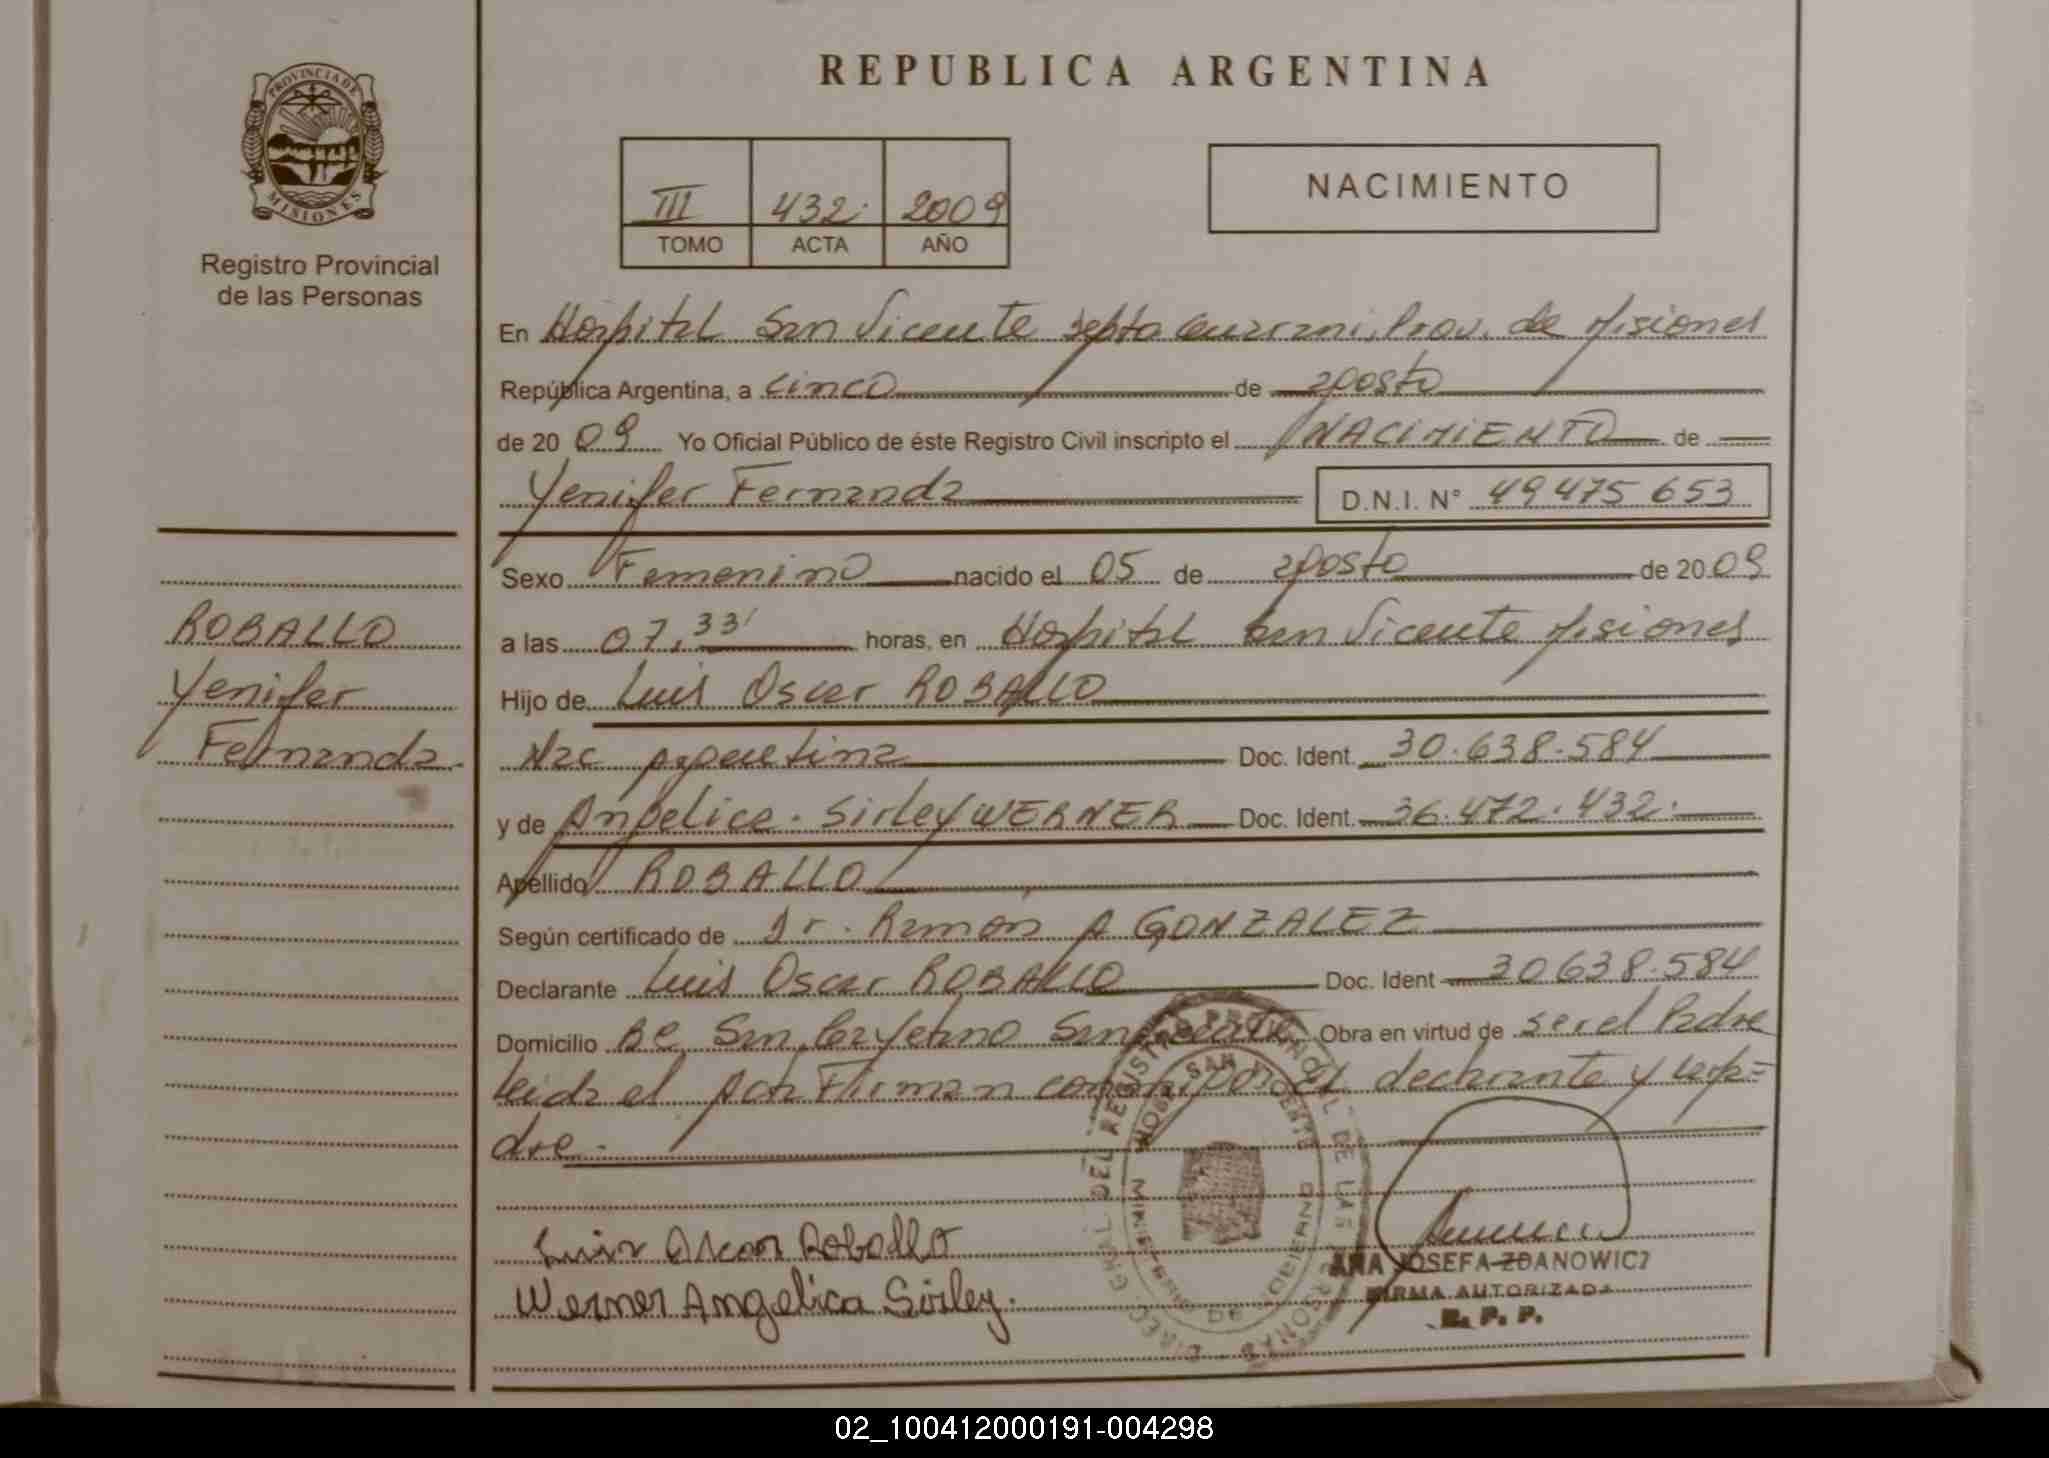 PROVINCIA DE
MISIONES
Registro Provincial
de las Personas
ROBALLO
Yenifer
Fernanda.
REPUBLICA ARGENTINA
III 432. 2009
TOMO ACTA AÑO
NACIMIENTO
En Hospital San Vicente Depto Guarani, Prov. de Misiones
República Argentina, a cinco de agosto
de 20 09 Yo Oficial Público de éste Registro Civil inscripto el NACIMIENTO de
Yenifer Fernanda D.N.I. N° 49475653
Sexo Femenino nacido el 05 de agosto de 20 09
a las 07,33' horas, en Hospital San Vicente Misiones
Hijo de Luis Oscar ROBALLO
Nac Argentina Doc. Ident. 30.638.584
y de Angelica. Sirley WERNER Doc. Ident. 36.472.432.
Apellido ROBALLO
Según certificado de Dr. Ramon A GONZALEZ
Declarante Luis Oscar ROBALLO Doc. Ident 30638.584
Domicilio Bº San Cayetano San Vicente Obra en virtud de ser el Padre
Leida el Acta Firman conmigo el declarante y la Ma=
dre.
Luis Oscar Roballo
Werner Angelica Sirley.
DIREC. GRAL. DEL REGISTRO PROVINCIAL DE LAS PERSONAS
SAN VICENTE
MINISTERIO DE GOBIERNO
ANA JOSEFA ZDANOWICZ
FIRMA AUTORIZADA
R. P. P.
02_100412000191-004298